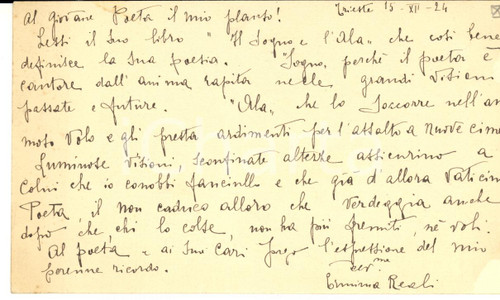 Trieste 15 - XII - 24
Al giovane Poeta il mio plauso!
Lessi il Suo libro "Il Sogno e l'Ala" che così bene
definisce la Sua poesia. "Sogno, perché il poeta è
cantore dall'anima rapita nelle grandi visioni
passate e future. "Ala" che lo soccorre nell'an
moso volo e gli presta ardimenti per l'assalto a nuove cime
Luminose visioni, sconfinate altezze assicurino a
Colui che io conobbi fanciullo e che già d'allora vaticinai
Poeta, il non caduco alloro che verdeggia anche
dopo che, chi lo colse, non ha più fremiti, né voli.
Al poeta e ai Suoi Cari porgo l'espressione del mio
perenne ricordo.
Erminia Reali